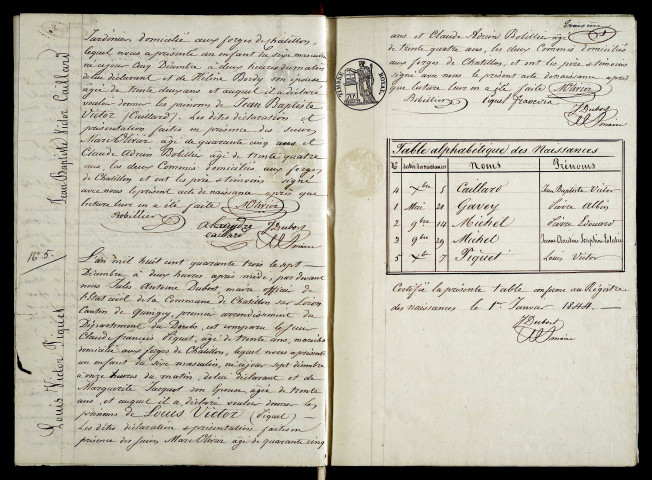 Jean Baptiste Victor Caillard
Jardinier, domicilié aux forges de chatillon,
lequel nous a présenté un enfant du sexe masculin
né ce jour cinq Décembre à deux heures du matin
de lui déclarant et de Hélène Bordy son épouse
âgée de trente deux ans et auquel il a déclaré
vouloir donner les prénoms de Jean Baptiste
Victor (Caillard). Les dites déclaration et
présentation faites en présence des sieurs
Marc Olivier âgé de quarante cinq ans et
Claude Adrien Bobillier âgé de trente quatre
ans, les deux Commis domiciliés aux forges
de Chatillon, et ont les père et témoins signé
avec nous le présent acte de naissance après que
lecture leur en a été faite MOlivier
Bobillier
Caillard
J Dubost
Maire
N° 5.
Louis Victor Piquet
L'an mil huit cent quarante trois le sept
Décembre à deux heures après midi, par devant
nous Jules Antoine Dubost, maire officier de
l'état civil de la Commune de Chatillon sur Lison
Canton de Quingey, premier arrondissement du
Département du Doubs, est comparu le sieur
Claude francois Piquet, âgé de trente ans,
domicilié aux forges de Chatillon, lequel nous a présenté
un enfant du sexe masculin, né ce jour sept décembre
à onze heures du matin, de lui déclarant et de
Marguerite Jacquot son épouse âgée de trente
ans, et auquel il a déclaré vouloir donner les
prénoms de Louis Victor (Piquet)
Les dites déclaration et présentation faites en
présence des sieurs Marc Olivier âgé de quarante cinq
ans et Claude Adrien Bobillier âgé
de trente quatre ans, les deux Commis domiciliés
aux forges de Chatillon, et ont les père et témoins
signé avec nous le présent acte de naissance après
que lecture leur en a été faite MOlivier
Bobillier Piquet francois
J Dubost
Maire
TIMBRE ROYAL
Table alphabétique des Naissances
Nos dates des naissances Noms Prénoms
4 Xbre 5 Caillard Jean Baptiste Victor
1 Mai 21 Gavoy Pierre Albin
2 9bre 14 Michel Pierre Edouard
3 9bre 29 Michel
5 Xbre 7 Piquet Louis Victor
Certifié la présente table conforme au Régistre
des naissances le 1er Janvier 1844.
J Dubost
Maire